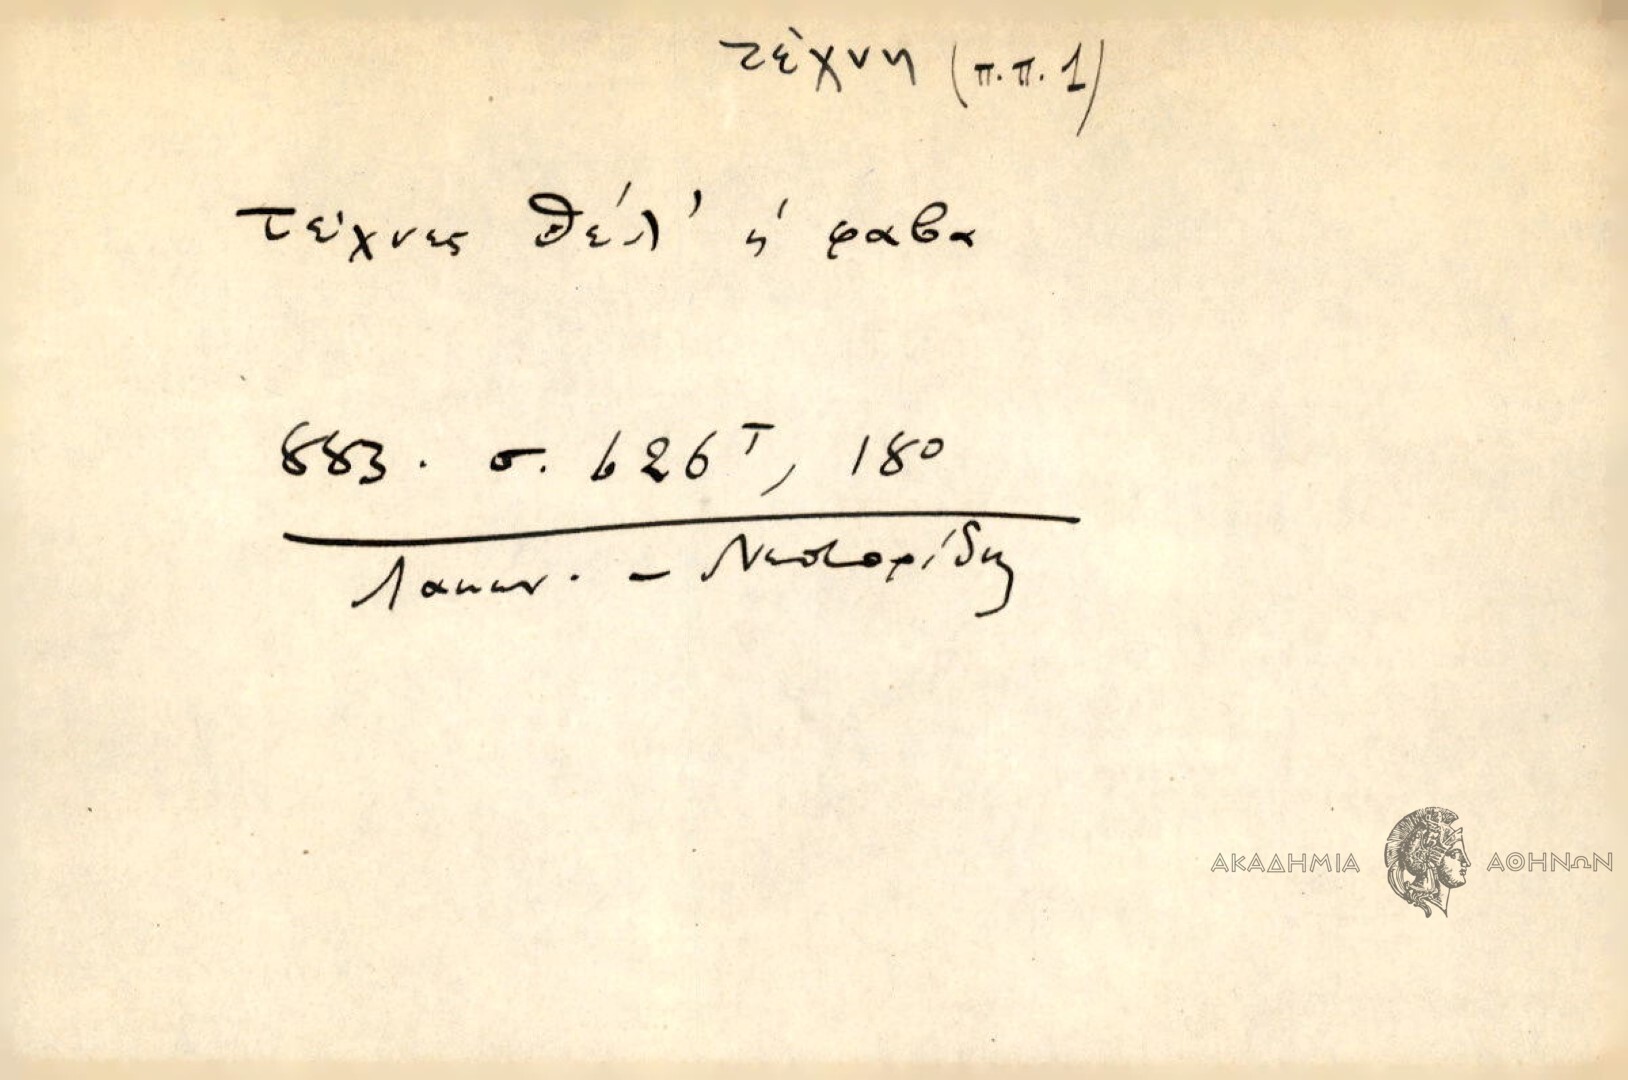 τέχνη (π.π. 1)
τέχνες θέλ' ἡ φαβα
883. σ. 626Τ, 18⁰
Λακων. - Νεστορίδης
ΑΚΑΔΗΜΙΑ ΑΘΗΝΩΝ